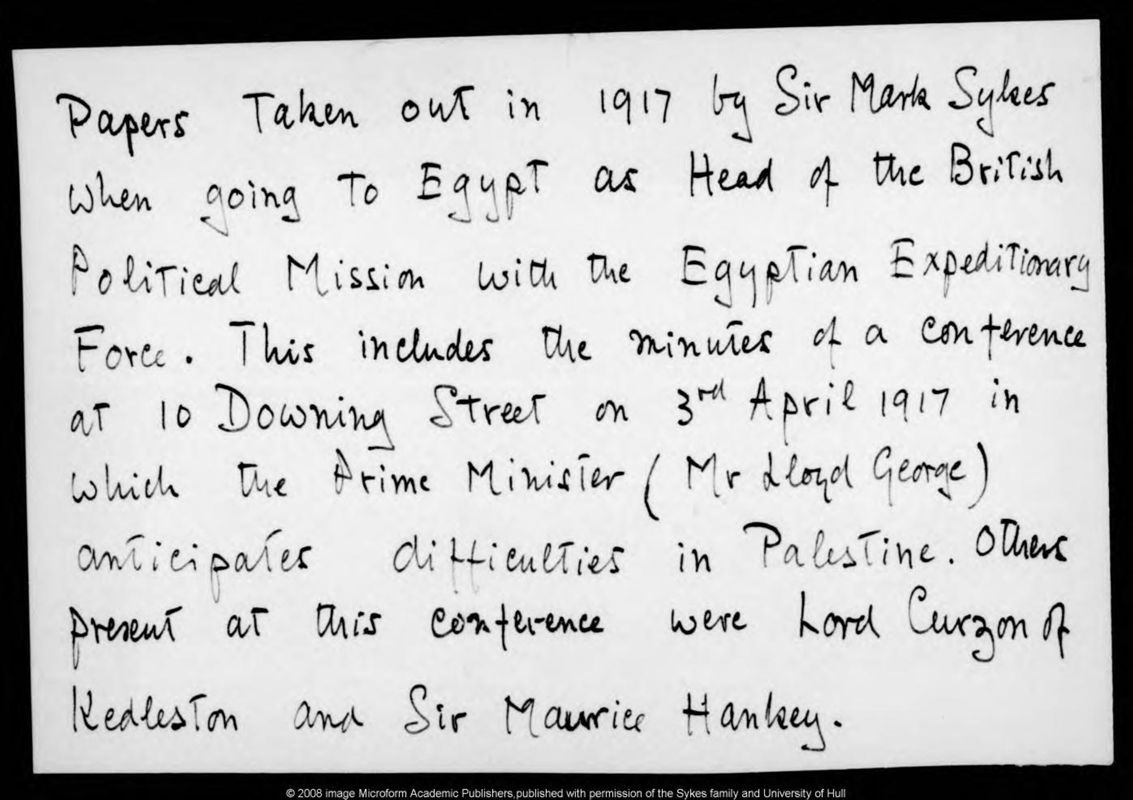 Papers Taken out in 1917 by Sir Mark Sykes
when going to Egypt as Head of the British
Political Mission with the Egyptian Expeditionary
Force. This includes the minutes of a conference
at 10 Downing Street on 3rd April 1917 in
which the Prime Minister (Mr Lloyd George)
anticipates difficulties in Palestine. Others
present at this conference were Lord Curzon of
Kedleston and Sir Maurice Hankey.
© 2008 image Microform Academic Publishers,published with permission of the Sykes family and University of Hull